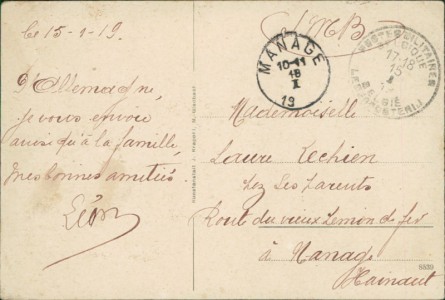 Le 15-1-19.
D'Allemagne,
je vous envoie
ainsi qu'à la famille,
mes bonnes amitiés
Léon
S.M.B
MANAGE
10-11
18
I
19
POSTES MILITAIRES
BELGIQUE
17-18
15
I
LEGERPOSTERIJ
BELGIE
Mademoiselle
Laure Lechien
chez ses parents
Rout du vieux Chemin de fer
à Manage
Hainaut
6839